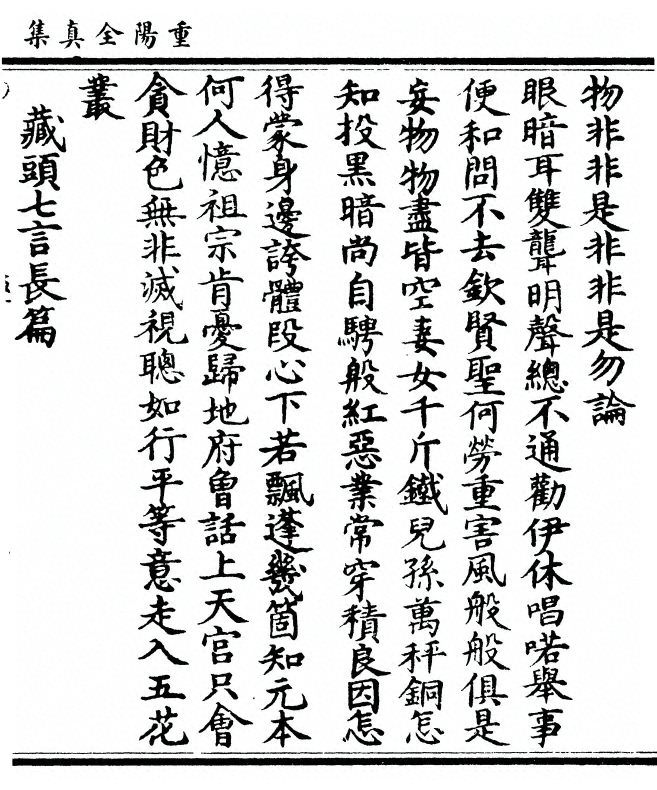 重陽全真集
物非非是非非是勿論
眼暗耳雙聾明聲總不通勸伊休唱喏舉事
便和問不去欽賢聖何勞重害風般般俱是
妄物物盡皆空妻女千斤鐵兒孫萬秤銅怎
知投黑暗尚自騁般紅惡業常穿積良因怎
得蒙身邊誇體段心下若飄蓬幾箇知元本
何人憶祖宗肯憂歸地府曾話上天宮只會
貪財色無非滅視聰如行平等意走入五花
叢
藏頭七言長篇